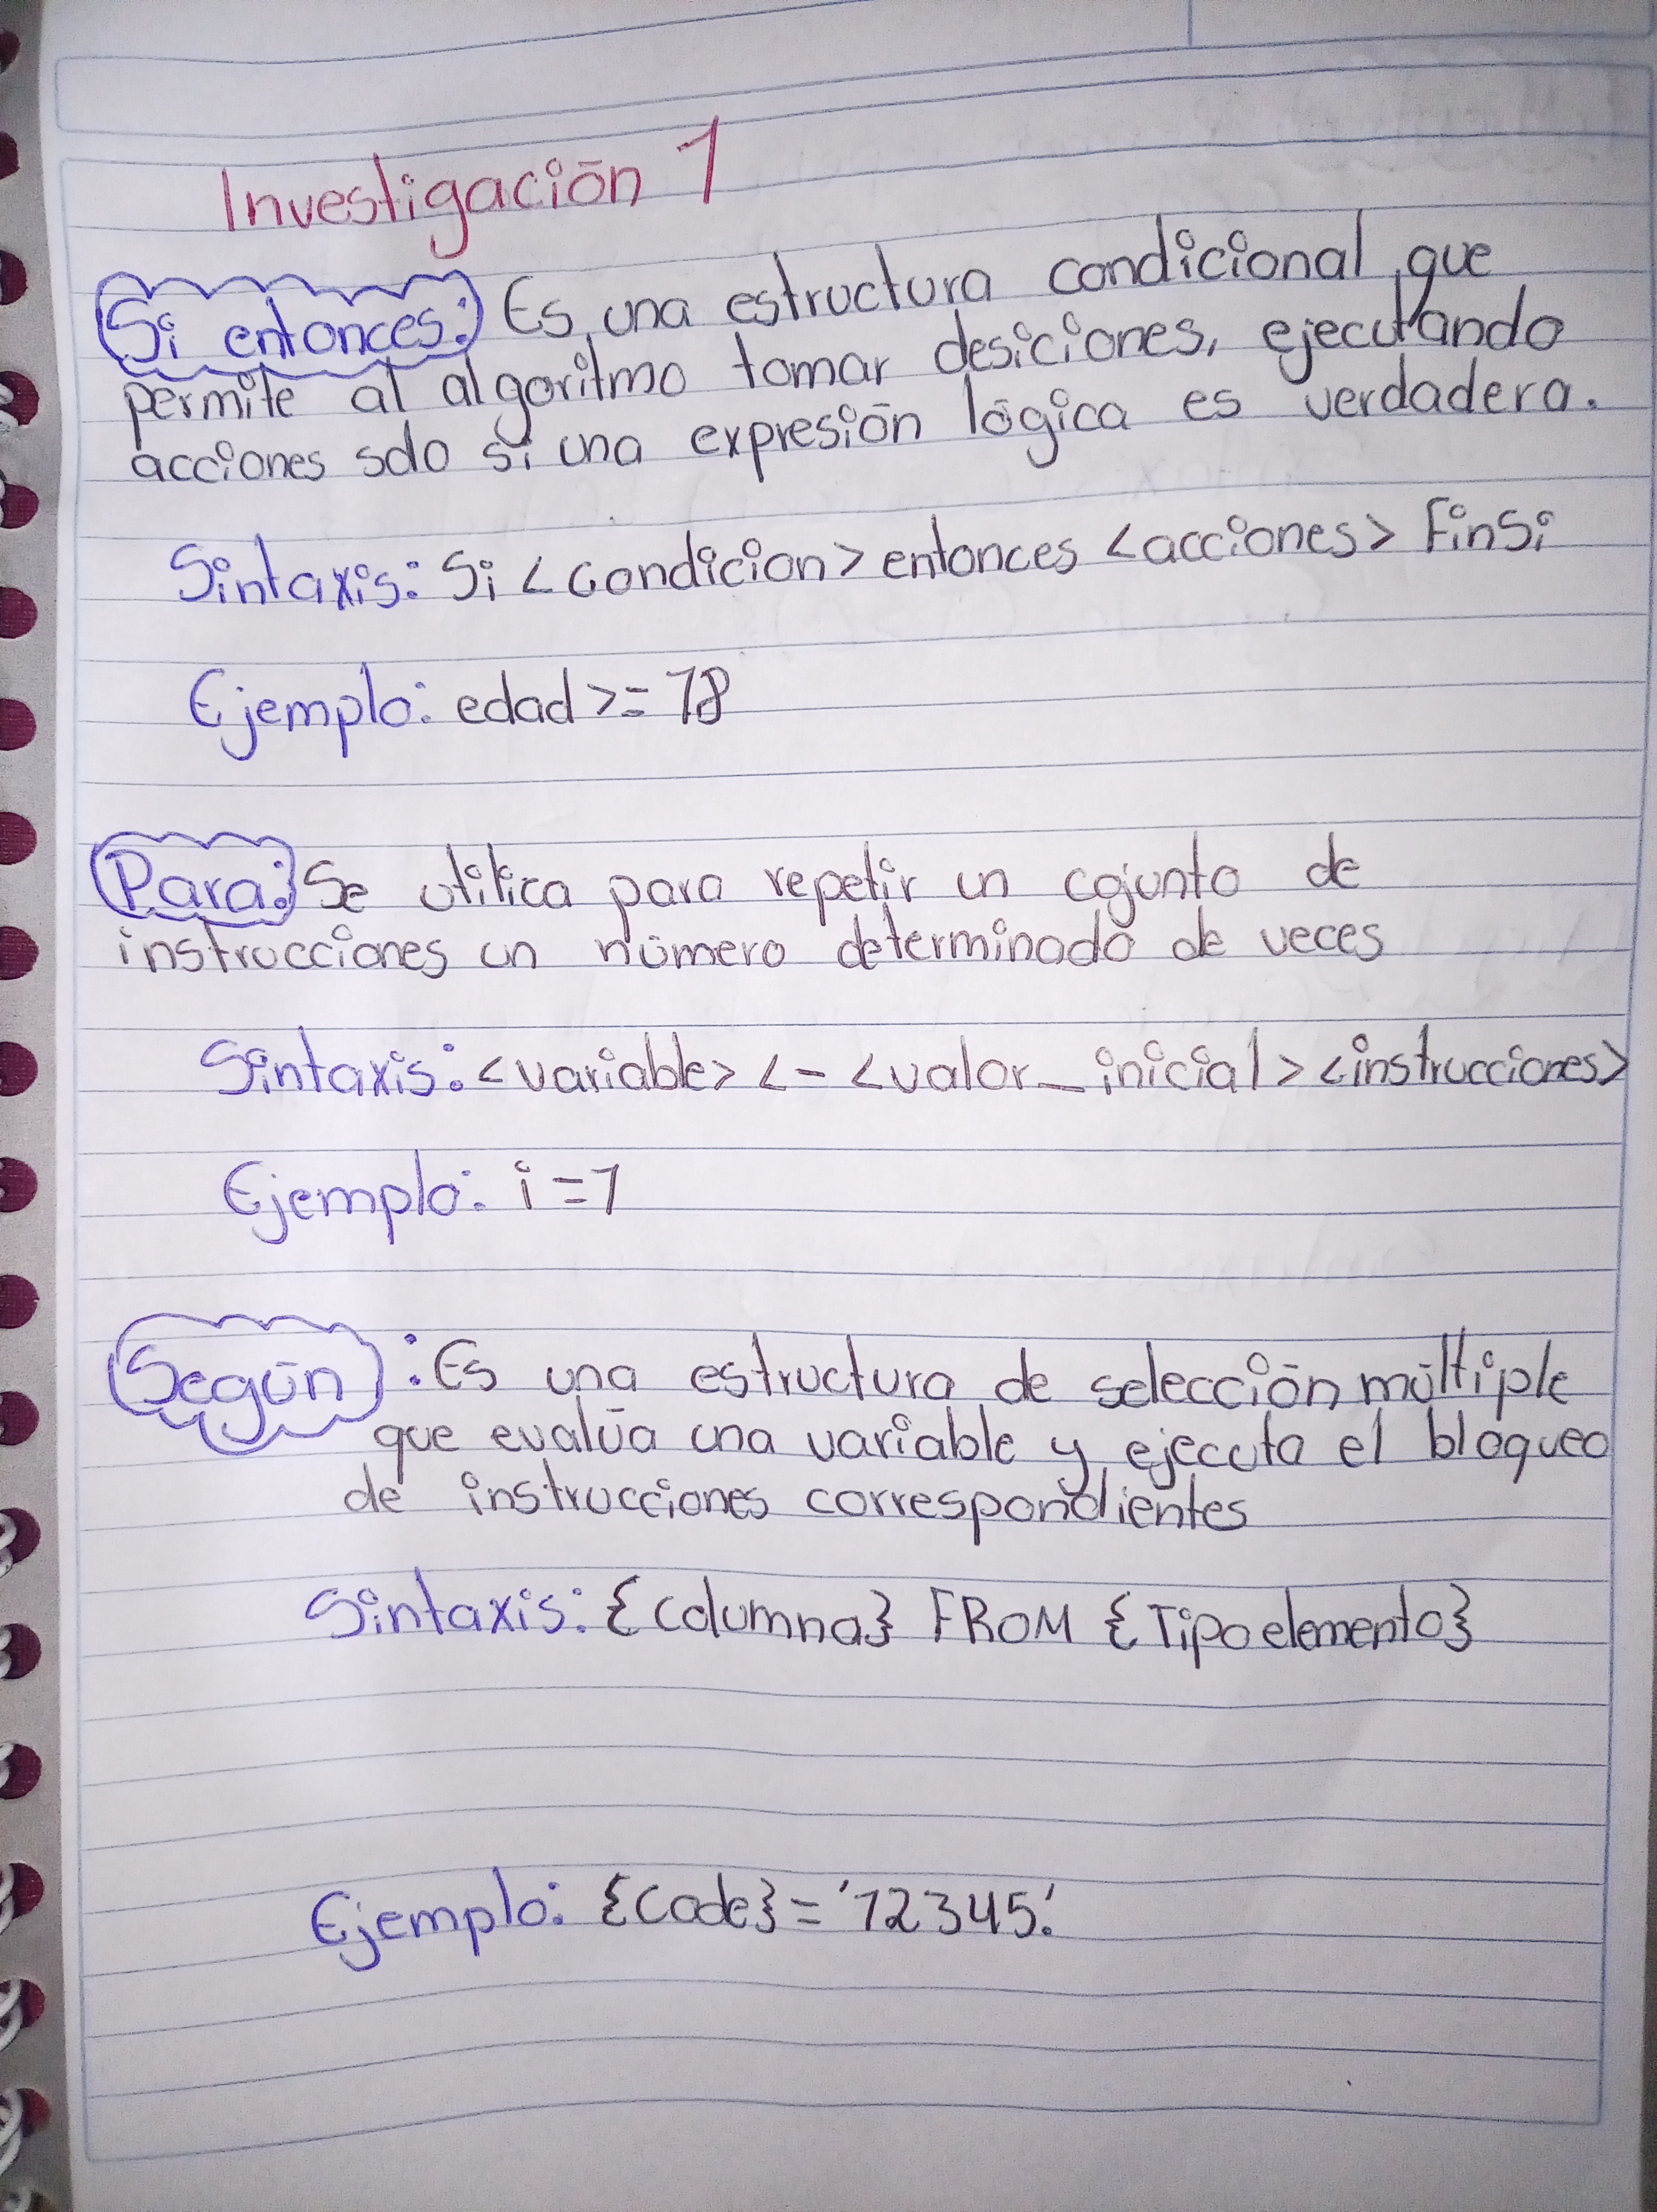 Investigación 1
Si entonces: Es una estructura condicional que
permite al algoritmo tomar desiciones, ejecutando
acciones solo si una expresión lógica es verdadera.
Sintaxis: Si <condicion> entonces <acciones> FinSi
Ejemplo: edad >= 18
Para: Se utilica para repetir un cojunto de
instrucciones un número determinado de veces
Sintaxis: <variable> <- <valor_inicial> <instrucciones>
Ejemplo: i=1
Según: Es una estructura de selección múltiple
que evalúa una variable y ejecuta el bloqueo
de instrucciones correspondientes
Sintaxis: {Columna} FROM {Tipoelemento}
Ejemplo: {Code} = '12345.'